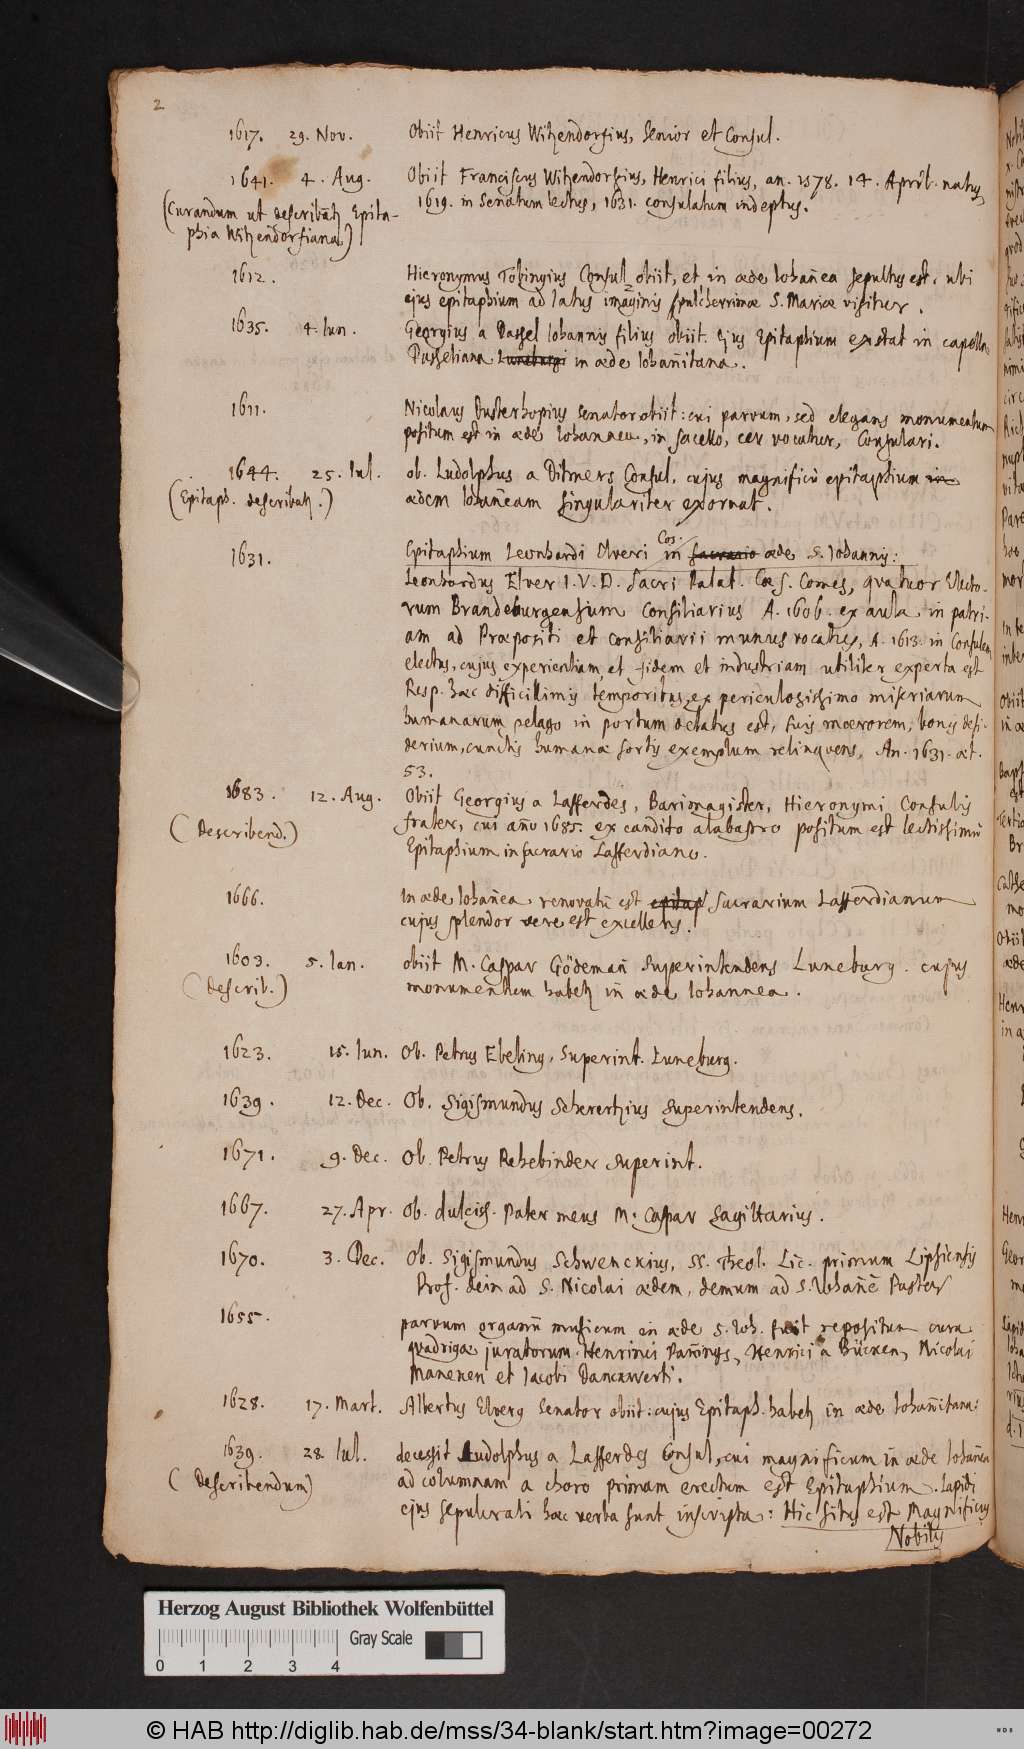 2
1617. 29. Nov. Obiit Henricus Witzendorfius, Senior et Consul.
1641. 4. Aug. Obiit Franciscus Witzendorfius, Henrici filius, an. 1578. 14. April. natus,
(Curandum ut describatz Epita- 1619. in Senatum lectus, 1631. consulatum indeptus.
phia Witzendorfiana)
1612. Hieronymus Töbingius Consul obiit, et in æde Iohañea sepultus est, ubi
ejus epitaphium ad latus imaginis pulcherrimæ S. Mariæ visitur.
1635. 4. Iun. Georgius a Dassel Iohannis filius obiit. Ejus Epitaphium exstat in capella
Dasseliana Luneburgi in æde Iohañitana.
1611. Nicolaus Dusterhopius Senator obiit: cui parvum, sed elegans monumentum
positum est in æde Iohannea, in sacello, cev vocatur, Consulari.
1644. 25. Iul. ob. Ludolphus a Ditmers Consul, cujus magnificū epitaphium in
(Epitaph. describatz.) ædem Iohaneam singulariter exornat.
1631. Epitaphium Leonhardi Elveri Cos. in sacrario æde S. Iohannis:
Leonhardus Elver I. V. D. Sacri Palat. Cæs. Comes, quatuor Electo-
rum Brandeburgensium Consiliarius A. 1606. ex aula in patri-
am ad Præpositi et consiliarii munus vocatus, A. 1613. in Consulem
electus, cujus experientiam, et fidem et industriam utiliter experta est
Resp. hac difficillimis temporibus, ex periculosissimo miseriarum
humanarum pelago in portum delatus est, suis moerorem, bonis desi-
derium, cunctis humanæ sortis exemplum relinquens, An. 1631. æt.
53.
1683. 12. Aug. Obiit Georgius a Lafferdes, Barimagister, Hieronymi Consulis
(Describend.) frater, cui año 1685. ex candido alabastro positum est lectissimū
Epitaphium in sacrario Lafferdiano.
1666. In æde Iohañea renovatū est epitap sacrarium Lafferdianum
cujus splendor vere est excellens.
1603. 5. Ian. obiit M. Caspar Gödemañ Superintendens Luneburg. cujus
(describ.) monumentum habetz iñ æde Iohannea.
1623. 15. Iun. Ob. Petrus Ebeling, Superint. Luneburg.
1639. 12. Dec. Ob. Sigismundus Scherertzius Superintendens.
1671. 9. Dec. Ob. Petrus Rehebinder Superint.
1667. 27. Apr. Ob. dulciss. Pater meus M. Caspar Sagittarius.
1670. 3. Dec. Ob. Sigismundus Schwenckius, SS. Theol. Lic. primum Lipsiensis
Prof. dein ad S. Nicolai ædem, demum ad S. Iohañē Pastor
1655. parvum organū musicum in æde S. Ioh. fuit repositum cura
quadrigæ juratorum Henrici Pañings, Henrici a Bücken, Nicolai
Manenen et Iacobi Danckwerti.
1628. 17. Mart. Albertus Elverg Senator obiit: cujus Epitaph. habetz iñ æde Iohañitana:
1639. 28. Iul. decessit Ludolphus a Lafferdes Consul, cui magnificum iñ æde Iohañea
(Describendum) ad columnam a choro primam erectum est Epitaphium. Lapidi
ejus sepulcrali hæc verba sunt inscripta: Hic situs est Magnificus
Nobilis
Herzog August Bibliothek Wolfenbüttel
Gray Scale
0 1 2 3 4
© HAB http://diglib.hab.de/mss/34-blank/start.htm?image=00272